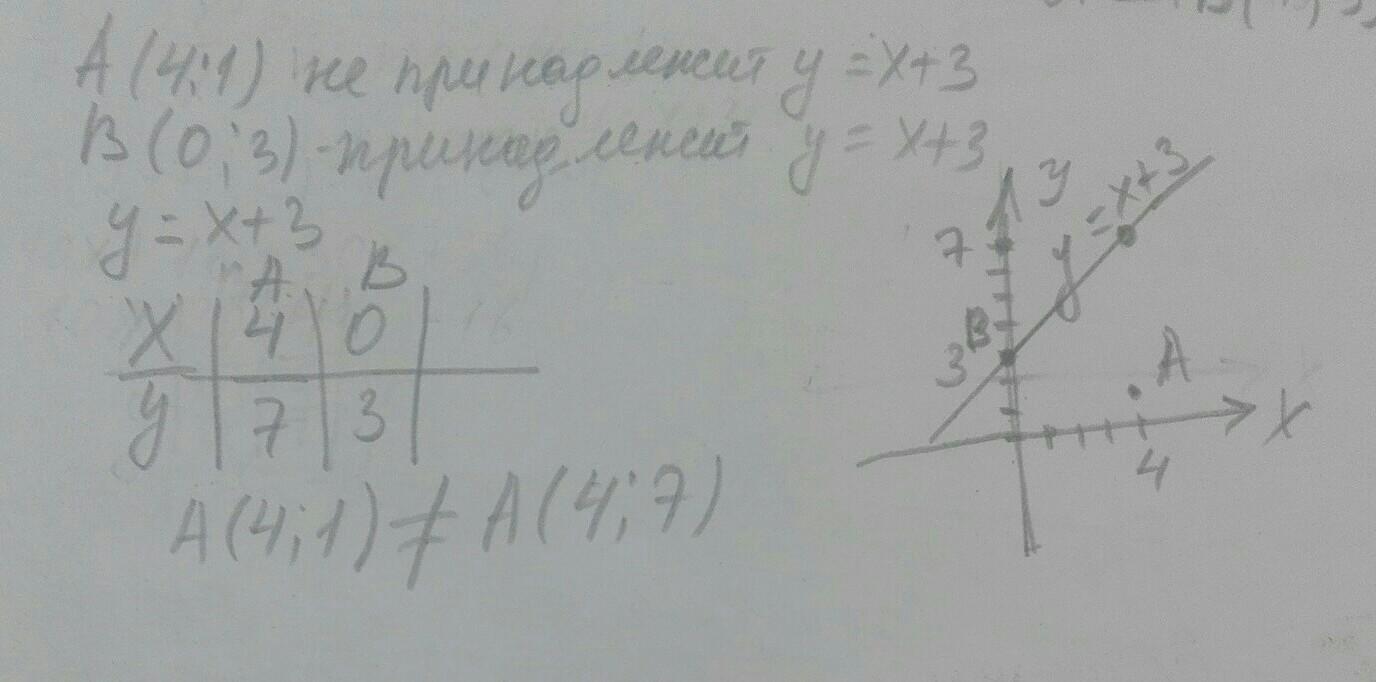 A(4;1) не принадлежит y = x+3
B(0;3)-принадлежит y = x+3
y = x+3
A B
X 4 0
y 7 3
A(4;1) ≠ A(4;7)
y
7
y = x+3
B
3
A
X
4